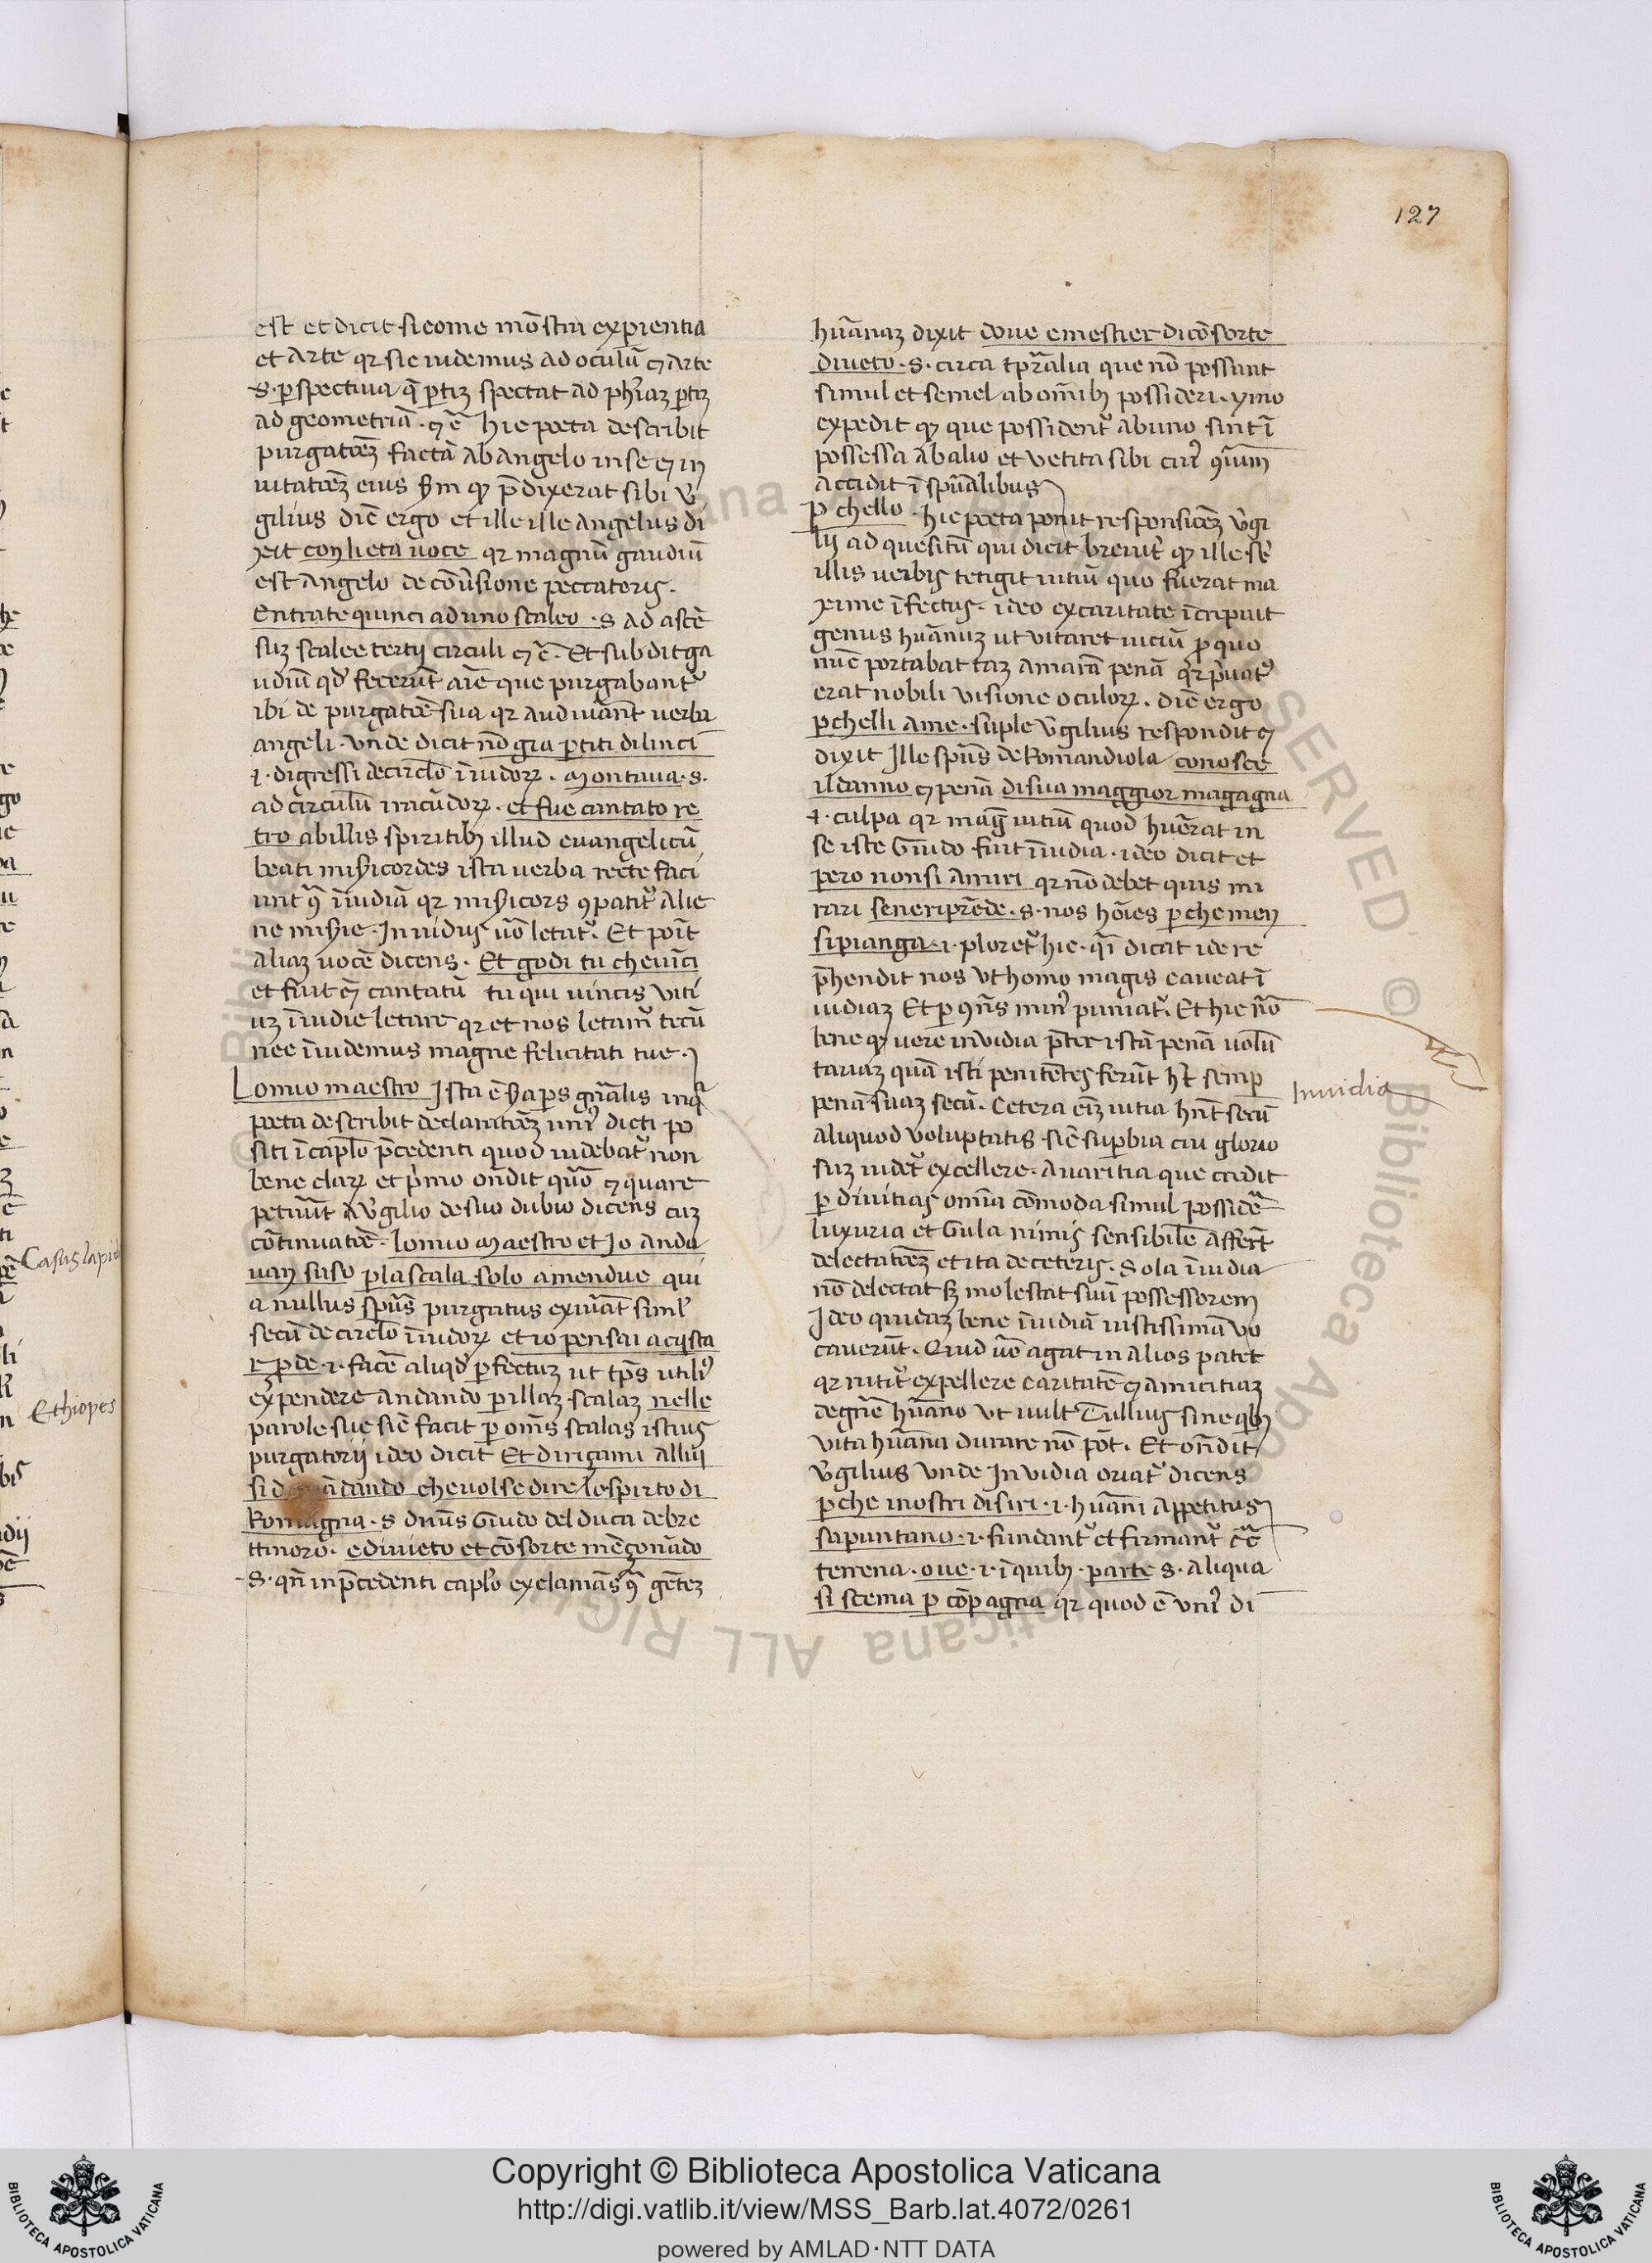 127
est et dicit sicome mōstra experientia
et arte qr sic uidemus ad oculū ⁊ arte
.s. perspectiua q̄ ptiȝ spectat ad phȳaȝ ptiȝ
ad geometriā. ⁊ c̄ hic poeta describit
purgatōeȝ factā ab angelo in se ⁊ in
uitatōeȝ eius sm̄ qȝ p̄dixerat sibi v̄
gilius dic̄ ergo et ille ille angelus di
xit con lieta uoce qr magnū gaudiū
est angelo de cōu̓sione peccatoris.
Entrate quinci ad uno scaleo .s. ad ascē
suȝ scalee tertij circuli ⁊ c̄. Et subdit ga
udiū qd̓ fecerūt aīe que purgabant᷑
ibi de purgatōe sua qr audiuāt uerba
angeli. vnde dicit nō gia partiti di linci
.i. digressi de circl̄o īuidorꝝ. montaua .s.
ad circulū iracūdorꝝ. et fue cantato re
tro ab illis spiritibꝫ illud euangelicū
beati misicordes ista uerba recte faci
unt ꝯ̄ īuidiā qr misicors ꝯpatit᷑ alie
ne misīe. Inuidus uō letat᷑. Et pōit
aliaȝ uocē dicens. Et godi tu che uīci
et fuit ēt cantatū tu qui uincis viti
uȝ īuidie letare qr et nos letam᷑ tecū
nec īuidemus magne felicitati tue.
Lo mio maestro Ista ē sā pars gn̄alis in q̄
poeta describit declaratōeȝ uni᷒ dicti po
siti ī capl̄o p̄cedenti quod uidebat᷑ non
bene clarꝝ et p̄mo ōndit quō ⁊ quare
petiuit a v̓gilio de suo dubio dicens cuȝ
cōtinuatōe. lo mio maestro et Io anda
uan suso per la scala solo amendue qui
a nullus spūs purgatus exiuāt siml̓
secū de circl̄o īuidorꝝ et io pensai acqsta
r pde .i. facē aliqd̓ perfectuȝ ut tp̄s utili᷒
expendere andando per illaȝ scalaȝ nelle
parole sue sic̄ facit per om̄s scalas istius
purgatorij ideo dicit Et diriçami allui
si andando che uolse dire lo spirto di
Romagna .s. dn̄us Guido del duca de bre
ttinoro. e diuieto et cōsorte mēçonādo
.s. qn̄ in p̄cedenti capl̓o exclamās ꝯ̄ gētez
hūanaȝ dixit doue e mestier di cōsorte
diueto .s. circa tp̄ralia que nō possunt
simul et semel ab om̄ibꝫ possideri. ymo
expedit qȝ que possident᷑ ab uno sint ī
possessa ab alio et vetita sibi cui᷒ ꝯ̄rium
accidit ī spūalibus
P chello. hic poeta ponit responsiōeȝ v̓gi
lij ad quesitū qui dicit breuit᷑ qȝ ille sē
illis uerbis tetigit uitiū quo fuerat ma
xime īfectus. ideo ex caritate īcripuit
genus hūanuȝ ut vitaret uiciū pro quo
nūc portabat taȝ amarā penā qr p̓uat᷒
erat nobili visione oculorꝝ. dic̄ ergo
p chelli a me. suple v̓gilius respondit ⁊
dixit Ille spūs de Romandiola conosce
il danno ⁊ penā di sua maggior magagna
.i. culpa qr magȝ uitiū quod hūerat in
se iste Guido fuit īuidia. ideo dicit et
pero non si amiri qr nō debet quis mi
rari se ne riprēde .s. nos hōies perche men
si pianga .i. ploret᷑ hic. q̄i dicat ide re
p̄hendit nos vt homo magis caueat ī
uidiaȝ Et per ꝯn̄s min᷒ puniat᷑. Et hic nō
bene qȝ uere inuidia p̄ter istā penā uolū
tariaȝ quā isti penitētes ferūt hȝ semp
penā suaȝ secū. Cetera eīȝ uitia hn̄t secū
aliquod voluptatis sic̄ superbia cui glorio
suȝ uidet᷑ excellere. Auaritia que credit
per diuitias omīa cōmoda simul possidē
luxuria et Gula nimis sensibilē affert
delectatōeȝ et ita de ceteris. Sola īuidia
nō delectat sȝ molestat suū possessorem
Ideo quidaȝ bene īuidiā iustissimā vo
cauerūt. Quid uō agat in alios patet
qr nitit᷑ expellere caritatē ⁊ amicitiaȝ
de gn̄e hūano vt uult Tullius sine qbꝫ
vita hūana durare nō pōt. Et ōndit
v̓gilius vnde Inuidia oriat᷑ dicens
perche inostri disiri .i. hūani appetitus
sapuntano .i. fundant᷑ et firmant᷑ c̄ c̄
terrena. oue .i. ī quibꝫ. parte .s. aliqua
si scema per cōpagna qr quod ē vni᷒ di
Inuidia
Casus lapid
Ethiopes
Copyright © Biblioteca Apostolica Vaticana
http://digi.vatlib.it/view/MSS_Barb.lat.4072/0261
powered by AMLAD · NTT DATA
BIBLIOTECA APOSTOLICA VATICANA
BIBLIOTECA APOSTOLICA VATICANA